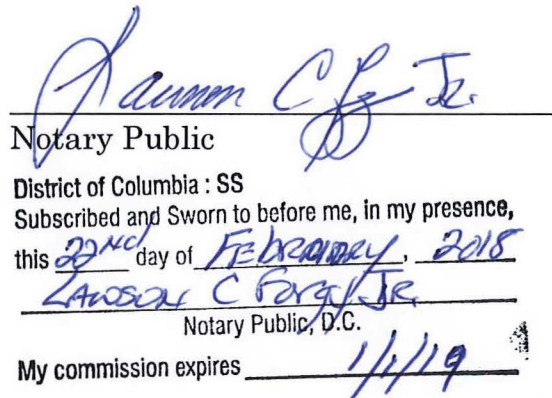 C Jr.
Notary Public
District of Columbia : SS
Subscribed and Sworn to before me, in my presence,
this 22nd day of FEBRUARY, 2018
LAWSON C Forgy JR.
Notary Public, D.C.
My commission expires 1/1/19